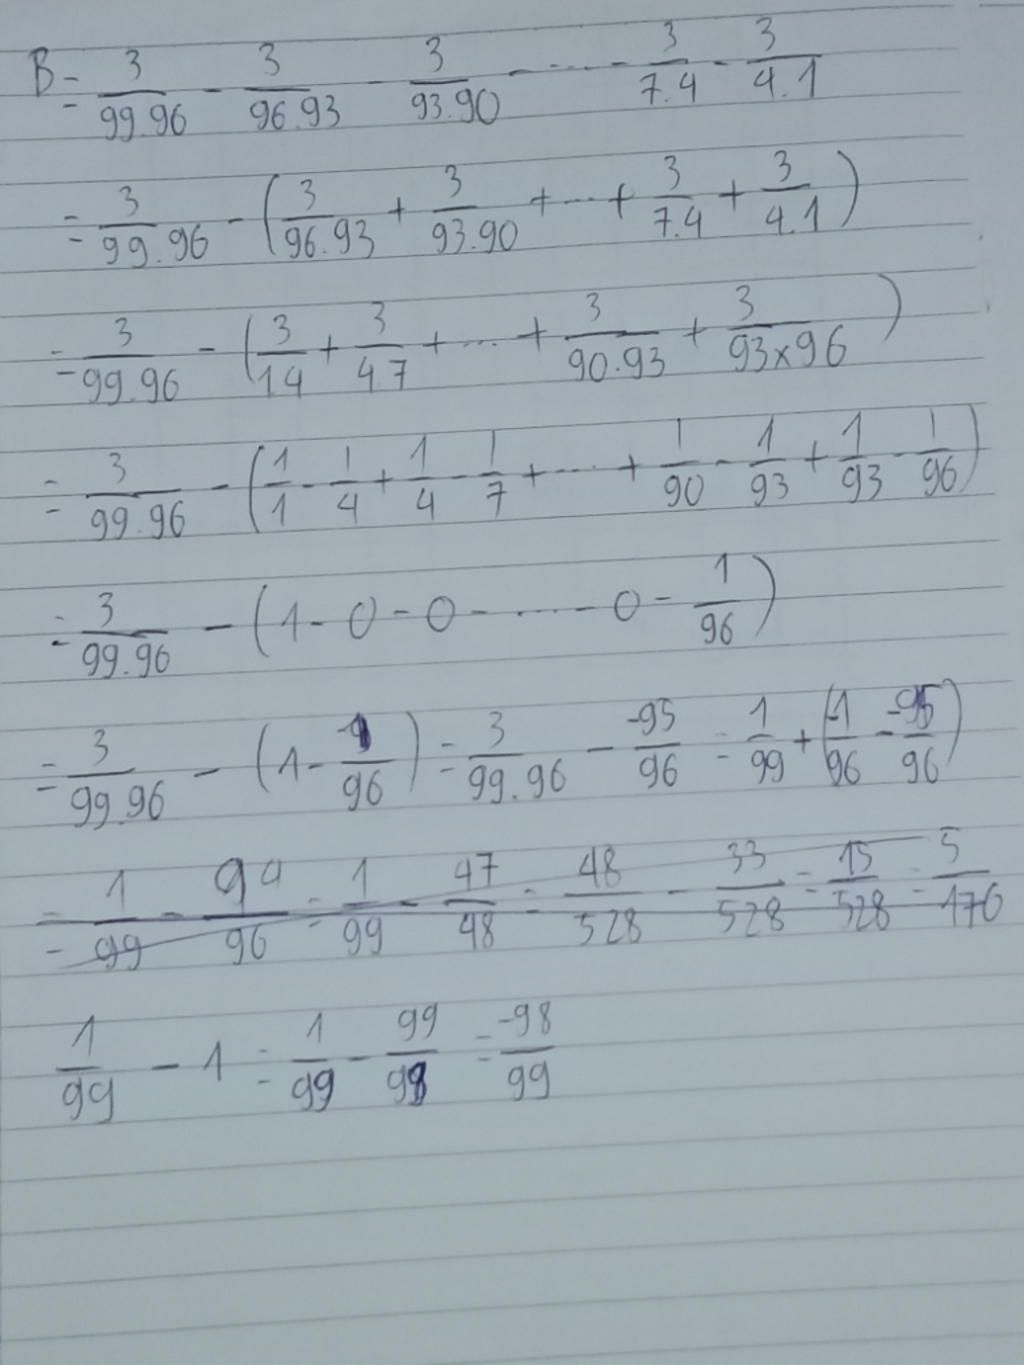 B = 3/99.96 - 3/96.93 - 3/93.90 - ..... - 3/7.4 - 3/4.1
= 3/99.96 - (3/96.93 + 3/93.90 + ... + 3/7.4 + 3/4.1)
= 3/99.96 - (3/1.4 + 3/4.7 + .... + 3/90.93 + 3/93x96)
= 3/99.96 - (1/1 - 1/4 + 1/4 - 1/7 + .... + 1/90 - 1/93 + 1/93 - 1/96)
= 3/99.96 - (1 - 0 - 0 - ..... - 0 - 1/96)
= 3/99.96 - (1 - 1/96) = 3/99.96 - -95/96 = 1/99 + (-1/96 - -95/96)
= 1/99 - 94/96 = 1/99 - 47/48 = 48/528 - 33/528 = 15/528 = 5/176
1/99 - 1 = 1/99 - 99/99 = -98/99